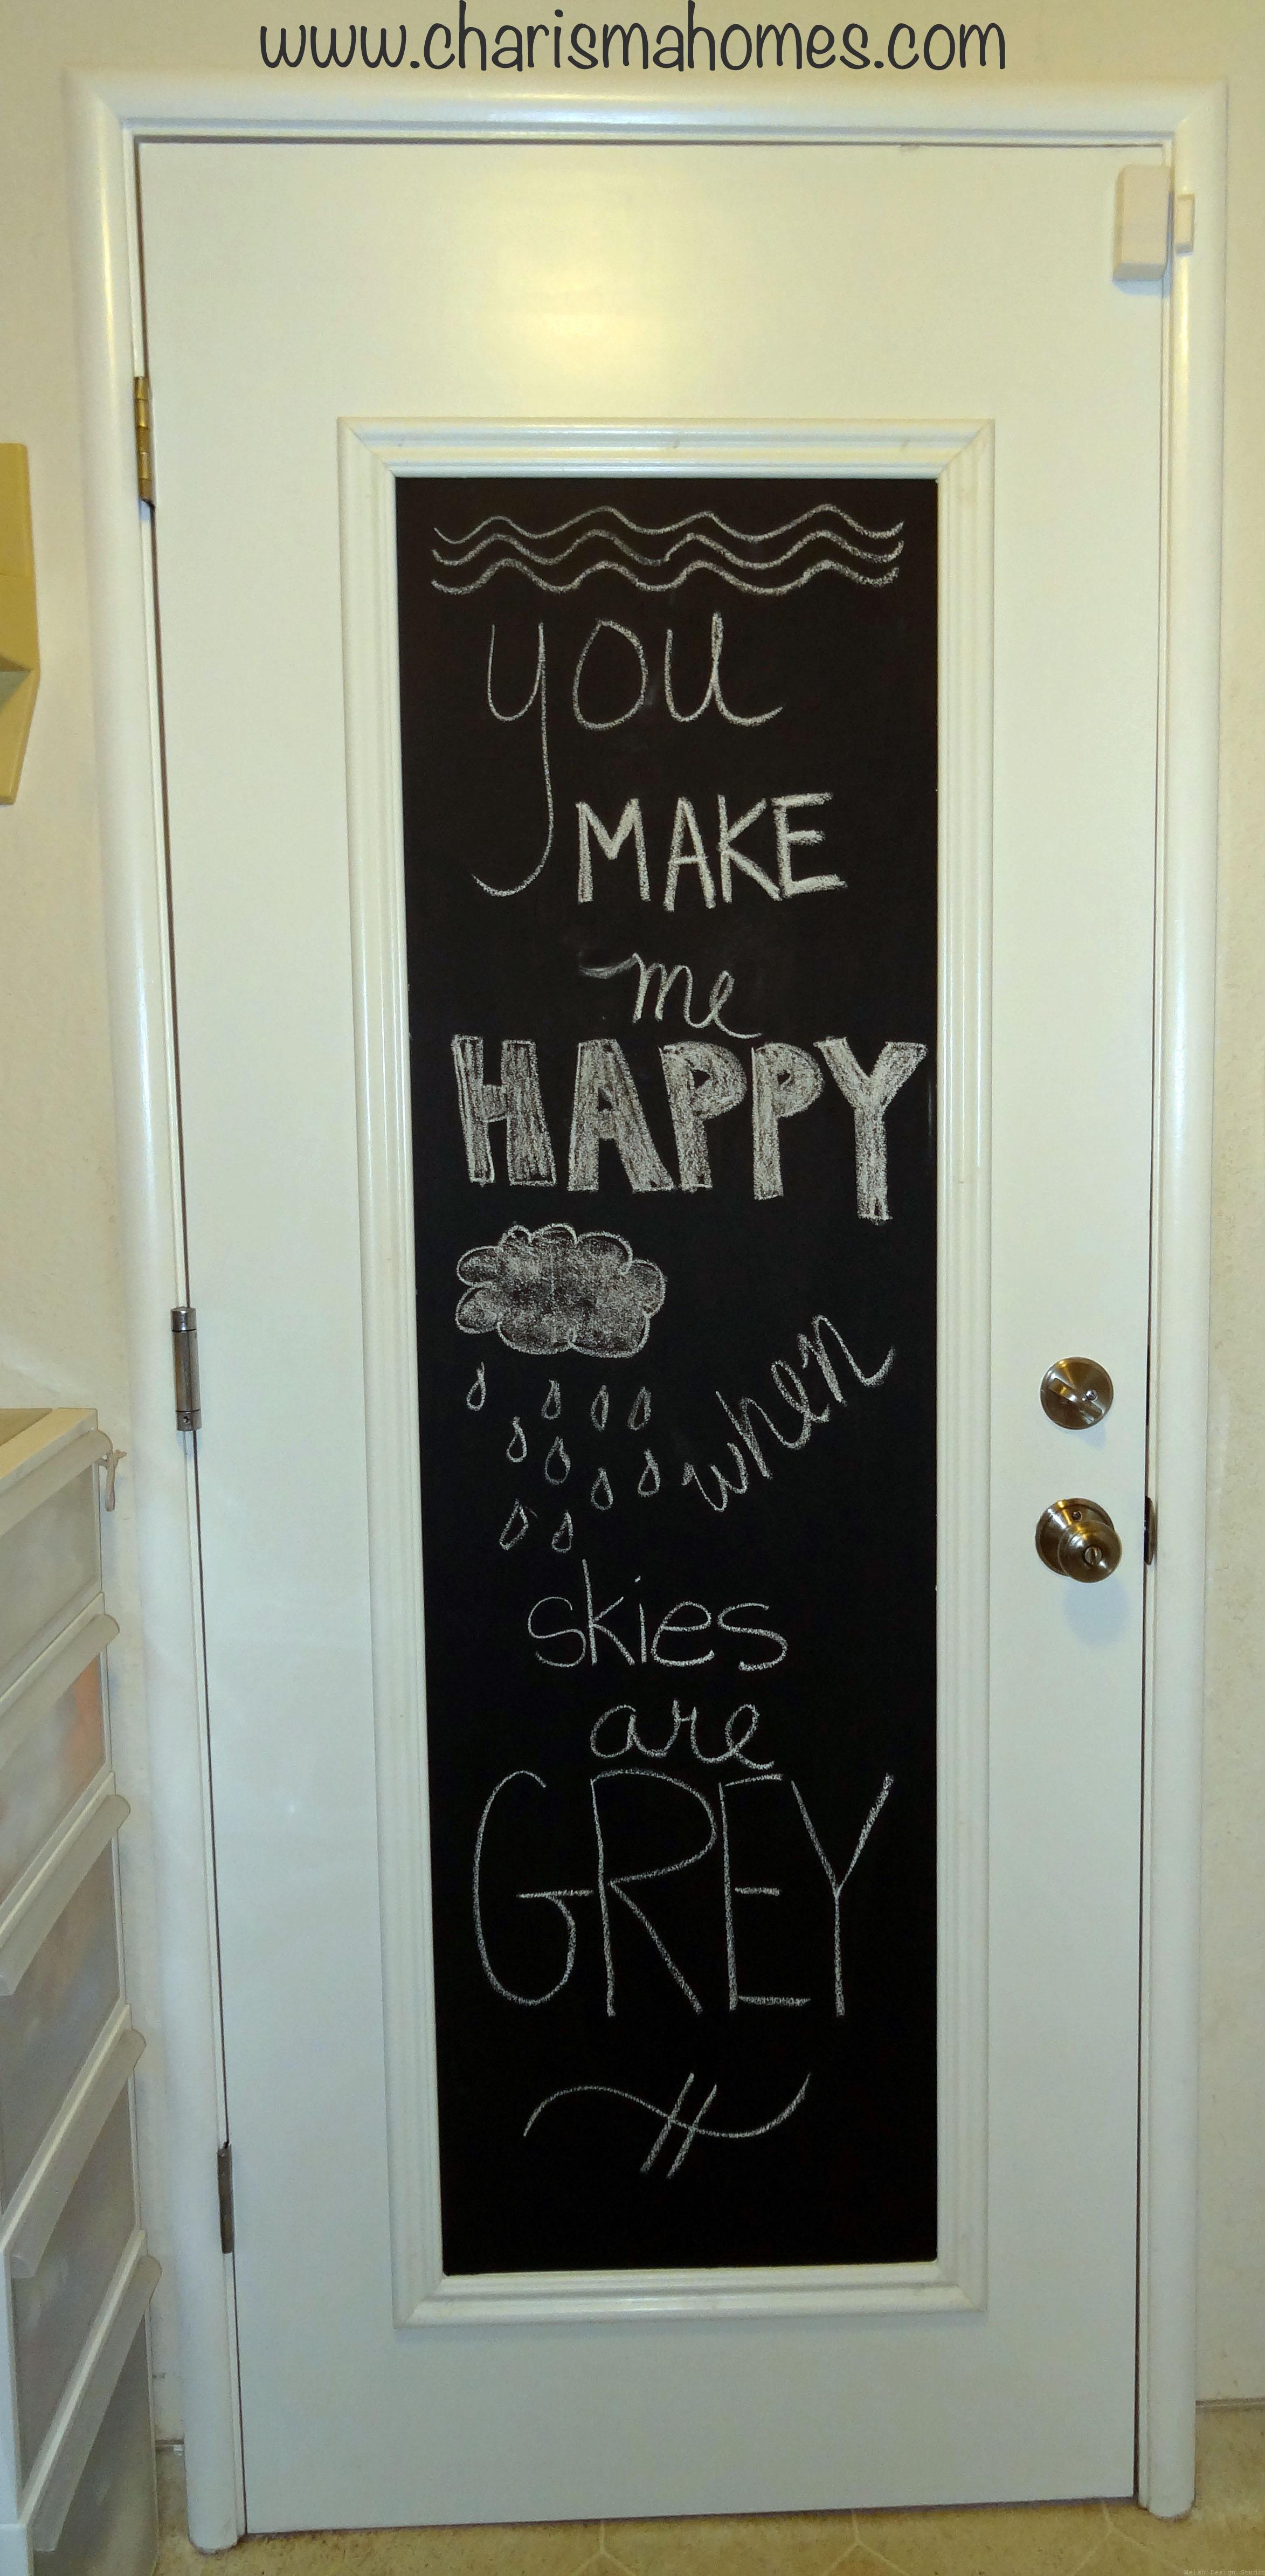 www.charismahomes.com
you
MAKE
me
HAPPY
when
skies
are
GREY